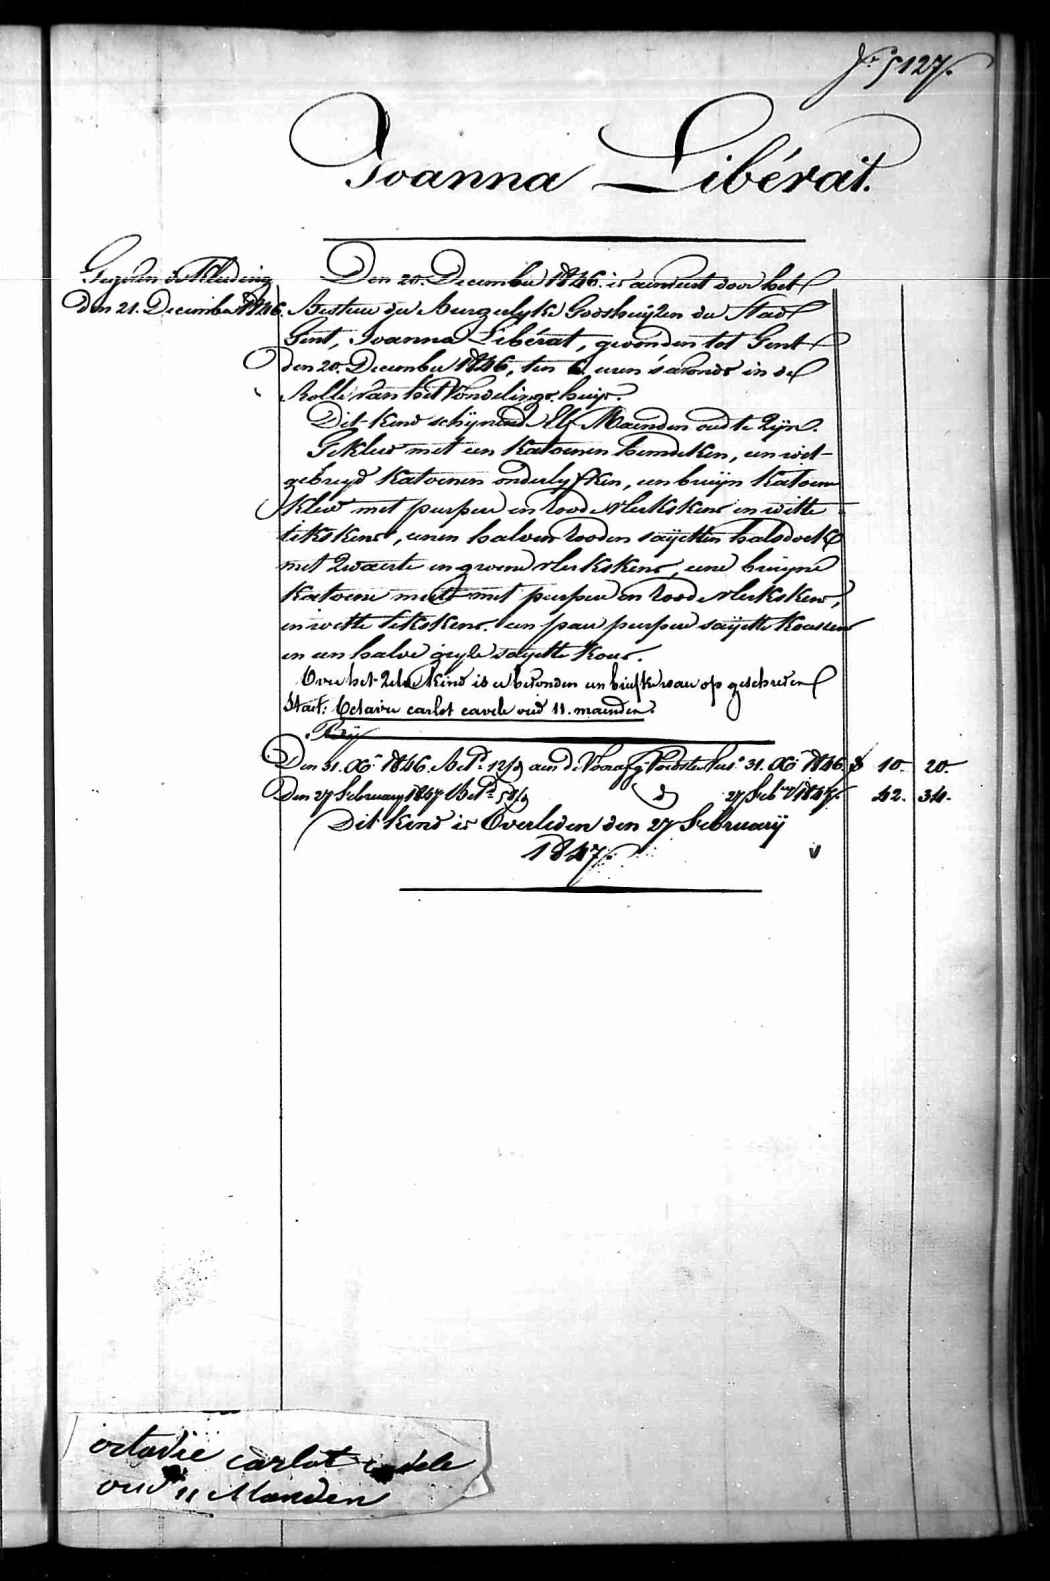 N.º 5127.
Joanna Libérait.
Gegeven de Kleeding
Den 21. December 1846.
Den 20. December 1846. is aenveert door het
Bestier der Burgerlyke Godshuyzen der Stad
Gent, Joanna Libérat, gevonden tot Gent
den 20. December 1846, ten 6 uren s'avonds in de
Rolle van het Vondelingshuys.
Dit kind schijnend Elf Maenden oud te zijn.
Gekleed met een katoenen hemdeken, een wit
gebreyd katoenen onderlyfken, een bruyn katoen
kleed met purper en rood vlekskens en witte
tikskens, eenen halven rooden sayetten halsdoek
met zwarte en groene vlekskens, eene bruyne
katoene muts met purper en roode vlekskens,
en witte tikskens. een paer purper sayette koussen
en een halve gryze sayette kous.
Over het zelve kind is er bevonden een briefke waer op geschreven
staet: Octavie carlot cavele oud 11. maenden.
Den 31. Xb. 1846 Bet.d 12/d aen de Voorafg. Voedster tus. 31. Xb. 1846 f 10. 20.
Den 27 February 1847 Bet.d 58/d d.º 27 Feb.ry 1847. 42. 34.
Dit kind is Overleden den 27 February
1847.
v
octavie carlot cavele
oud 11 Manden